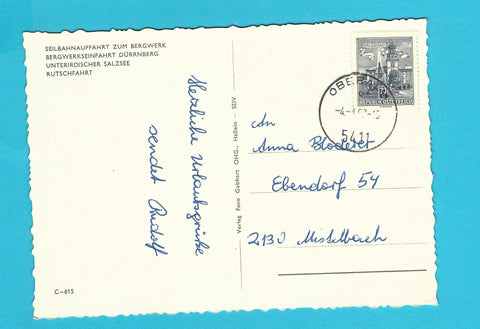 SEILBAHNAUFFAHRT ZUM BERGWERK
BERGWERKSEINFAHRT DÜRRNBERG
UNTERIRDISCHER SALZSEE
RUTSCHFAHRT
Herzliche Urlaubsgrüße
sendet Rudolf
C-615
Verlag Foto Gebhart OHG., Hallein - SDV
REPUBLIK ÖSTERREICH
OBERA
5411
An
Anna Bloderer
Ebendorf 54
2130 Mistelbach